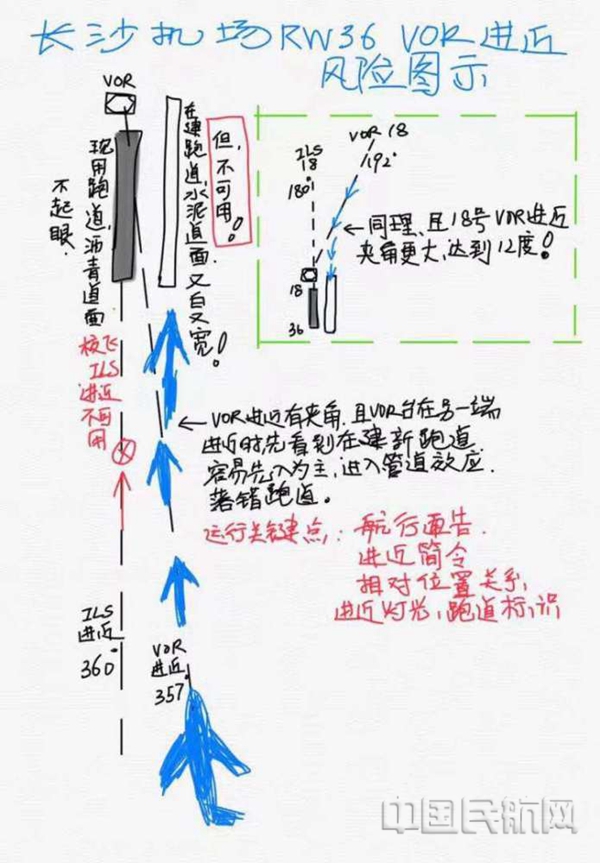 长沙机场RW36 VOR进近
风险图示
VOR
现用跑道,沥青道面
不起眼.
在建跑道,水泥道面又白又宽!
但,不可用!
校飞
ILS
进近
不可
用
ILS
进近
360°
VOR
进近
357°
VOR 18
192°
ILS
18
180°
18
36
←同理,且18号VOR进近
夹角更大,达到12度!
←VOR进近有夹角,且VOR台在另一端
进近时先看到在建新跑道
容易先入为主,进入管道效应.
落错跑道。
运行关键点:航行通告.
进近简令
相对位置关系,
进近灯光,跑道标识
中国民航网